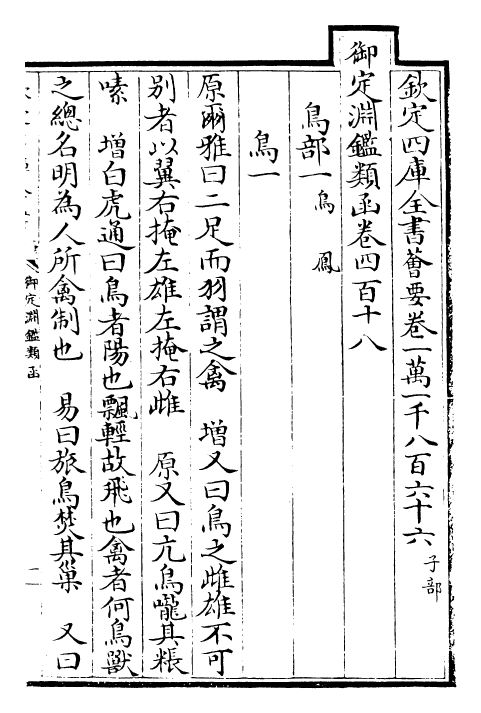 欽定四庫全書薈要卷一萬一千八百六十六 子部
御定淵鑑類函卷四百十八
鳥部一 鳥 鳳
鳥一
原爾雅曰二足而羽謂之禽 增又曰鳥之雌雄不可
別者以翼右掩左雄左掩右雌 原又曰亢鳥嚨其粻
嗉 增白虎通曰鳥者陽也飄輕故飛也禽者何鳥獸
之總名明為人所禽制也 易曰旅鳥焚其巢 又曰
御定淵鑑類函
一